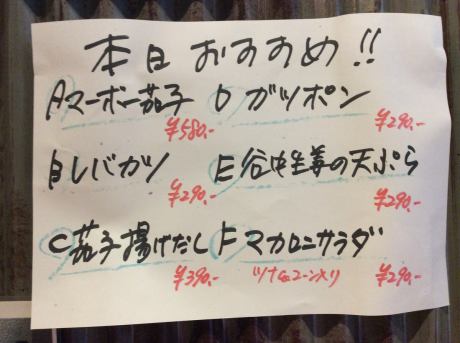 本日おすすめ!!
Aマーボー茄子 ¥580.-
Bレバカツ ¥290.-
C茄子揚げだし ¥390.-
Dガツポン ¥290.-
E谷中生姜の天ぷら ¥290.-
Fマカロニサラダ
ツナ&コーン入り ¥290.-